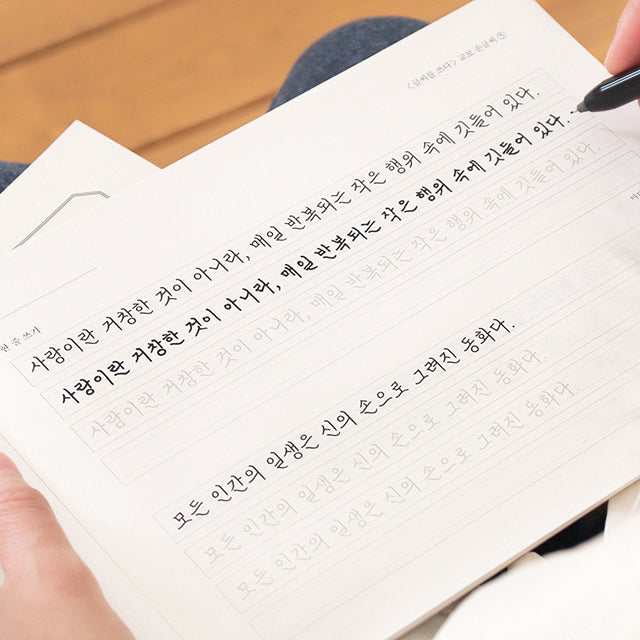 <글씨를 쓰다> 교보 손글씨 ⑤
한 줄 쓰기
사랑이란 거창한 것이 아니라, 매일 반복되는 작은 행위 속에 깃들어 있다.
사랑이란 거창한 것이 아니라, 매일 반복되는 작은 행위 속에 깃들어 있다.
사랑이란 거창한 것이 아니라, 매일 반복되는 작은 행위 속에 깃들어 있다.
모든 인간의 일생은 신의 손으로 그려진 동화다.
모든 인간의 일생은 신의 손으로 그려진 동화다.
모든 인간의 일생은 신의 손으로 그려진 동화다.